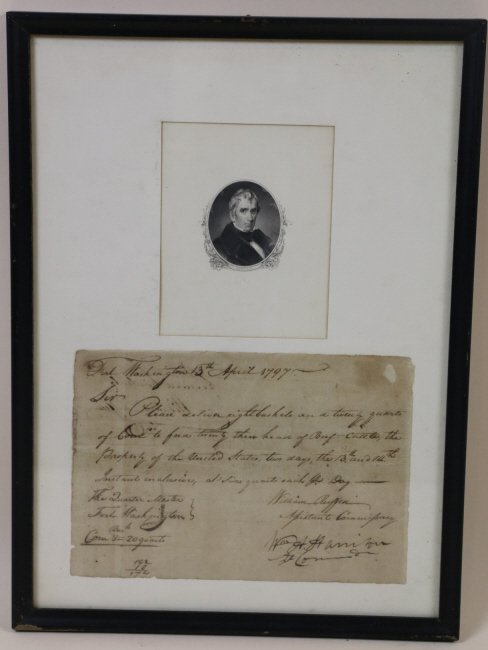 Fort Washington 13th April 1797
Sir
Please deliver eight bushels and twenty quarts
of Corn to feed twenty three head of Beef Cattle, the
Property of the United States, two days, the 13th and 14th
Instant inclusive, at Six quarts each Pr Day
The Quarter Master
Fort Washington
William Ruffin
Assistant Commissary
Bush
Corn 8 - 20 quarts
Wm H. Harrison